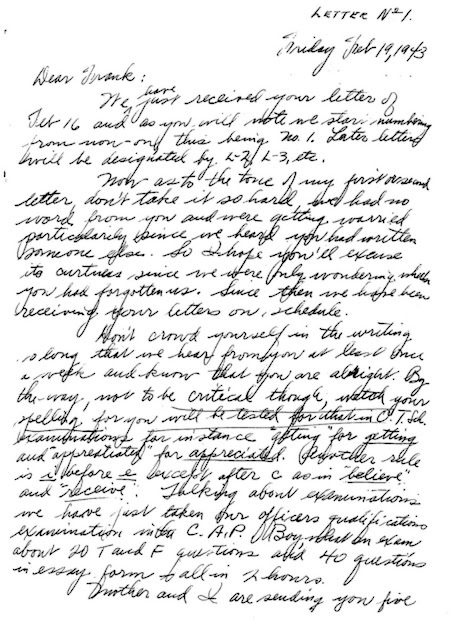 LETTER No 1.
Friday Feb 19, 1943
Dear Frank:
have
We, just received your letter of
Feb 16 and as you will note we start numbering
from now-on, this being No. 1. Later letters
will be designated by L-2, L-3, etc.
Now as to the tone of my first or second
letter, don't take it so hard, we had no
word from you and were getting worried
particularily since we heard you had written
someone else. So I hope you'll excuse
its curtness since we were only wondering whether
you had forgotten us. Since then we have been
receiving your letters on schedule.
Don't crowd yourself in the writing
so long that we hear from you at least once
a week and know that you are alright. By
the way, not to be critical though, watch your
spelling for you will be tested for that in C.T. Sch.
examinations for instance "getting" for getting
and "apprestiated" for appreciated. Another rule
is i before e except after c as in "believe"
and "receive". Talking about examinations
we have just taken our officers qualifications
examination in the C.A.P. Boy what an exam
about 20 T and F questions and 40 questions
in essay form & all in 2 hours.
Mother and I are sending you five